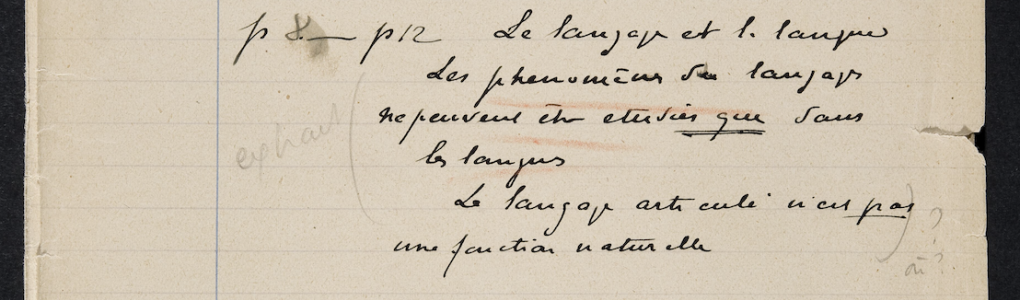 p 8 — p12 Le langage et la langue
Les phenomène du langage
ne peuvent être etudiés que dans
les langues
Le langage articulé n'est pas
une fonction naturelle
?
où ?